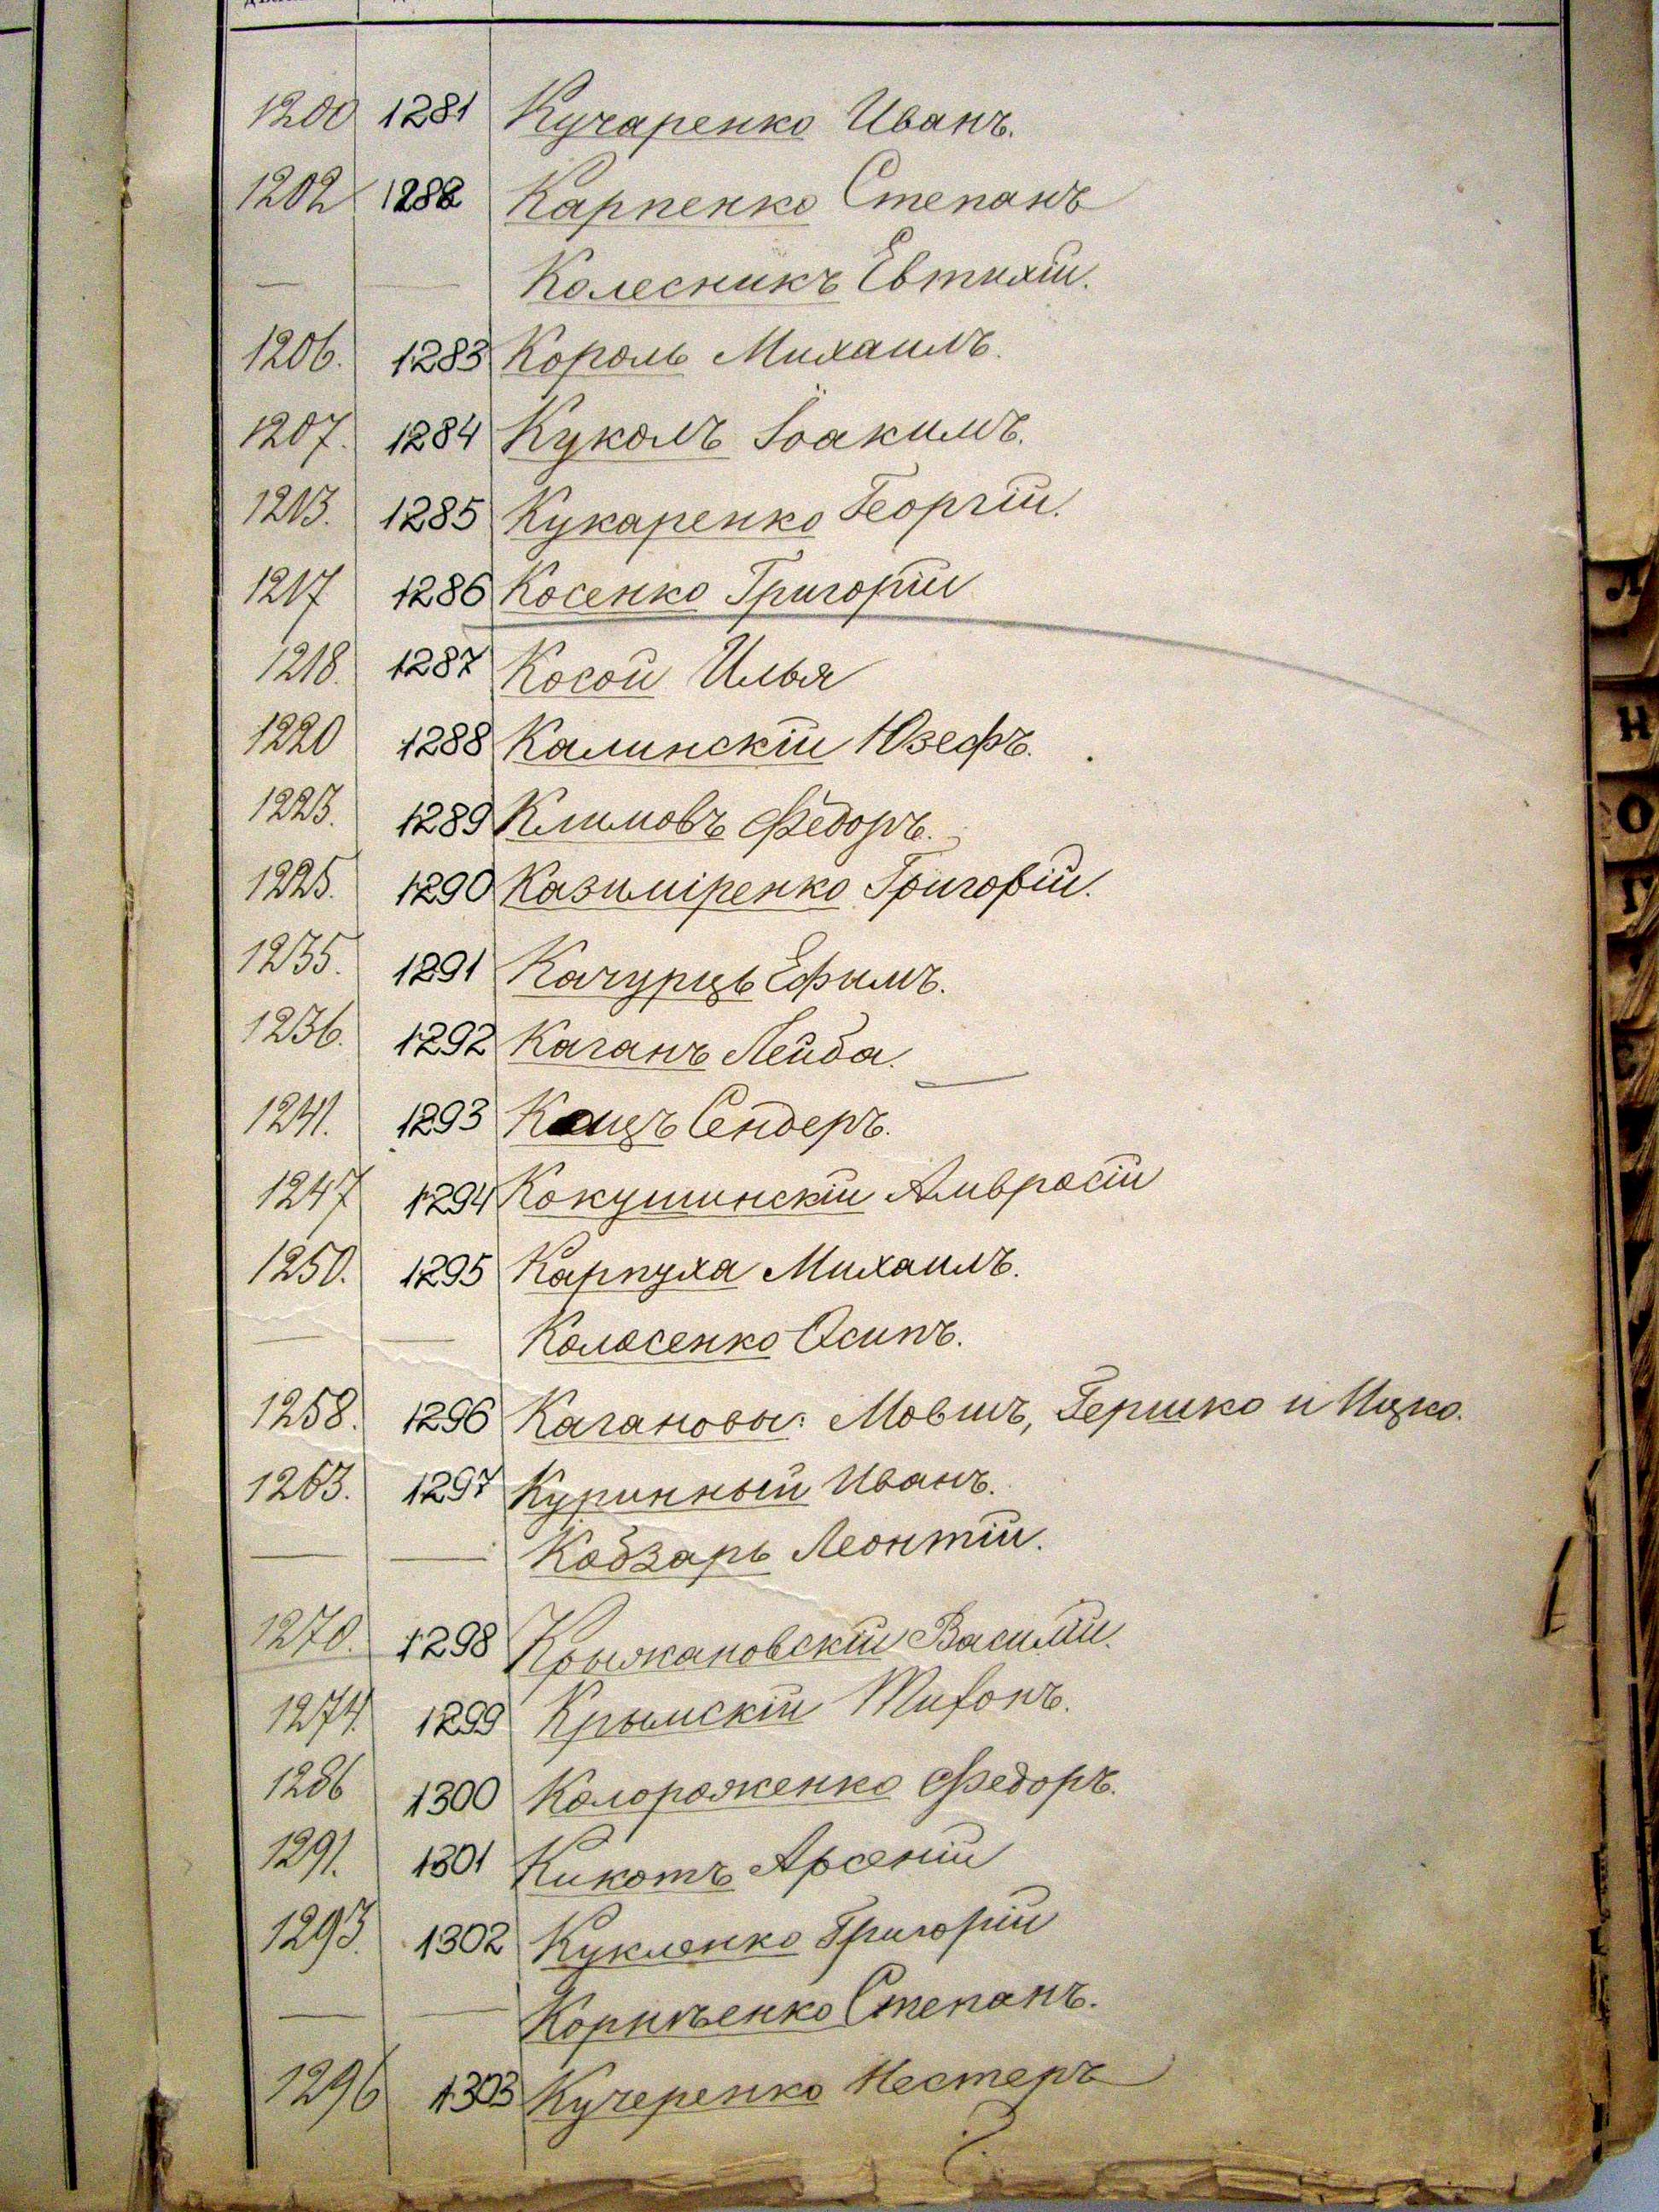 1200 1281 Кучаренко Иванъ.
1202 1282 Карпенко Степанъ
— — Колесникъ Евтихій.
1206. 1283 Король Михаилъ.
1207. 1284 Куколъ Іоакимъ.
1213. 1285 Кукаренко Георгій.
1217 1286 Косенко Григорій
1218. 1287 Косой Илья
1220 1288 Калинскій Юзефъ.
1223. 1289 Климовъ Федоръ.
1225. 1290 Казиміренко Григорій.
1235. 1291 Качурецъ Ефимъ.
1236. 1292 Каганъ Лейба.
1241. 1293 Кацъ Сендеръ.
1247 1294 Кокушинскій Амвросій
1250. 1295 Карпуха Михаилъ.
— — Колосенко Осипъ.
1258. 1296 Кагановы: Мовшъ, Гершко и Ицко.
1263. 1297 Куринный Иванъ.
— — Кобзарь Леонтій.
1270. 1298 Крыжановскій Василій.
1274. 1299 Крымскій
1286 1300 Колороженко Федоръ.
1291. 1301 Кикоть Арсеній
1293. 1302 Кукленко Григорій
— — Корніенко Степанъ.
1296 1303 Кучеренко Нестеръ
Л
Н
О